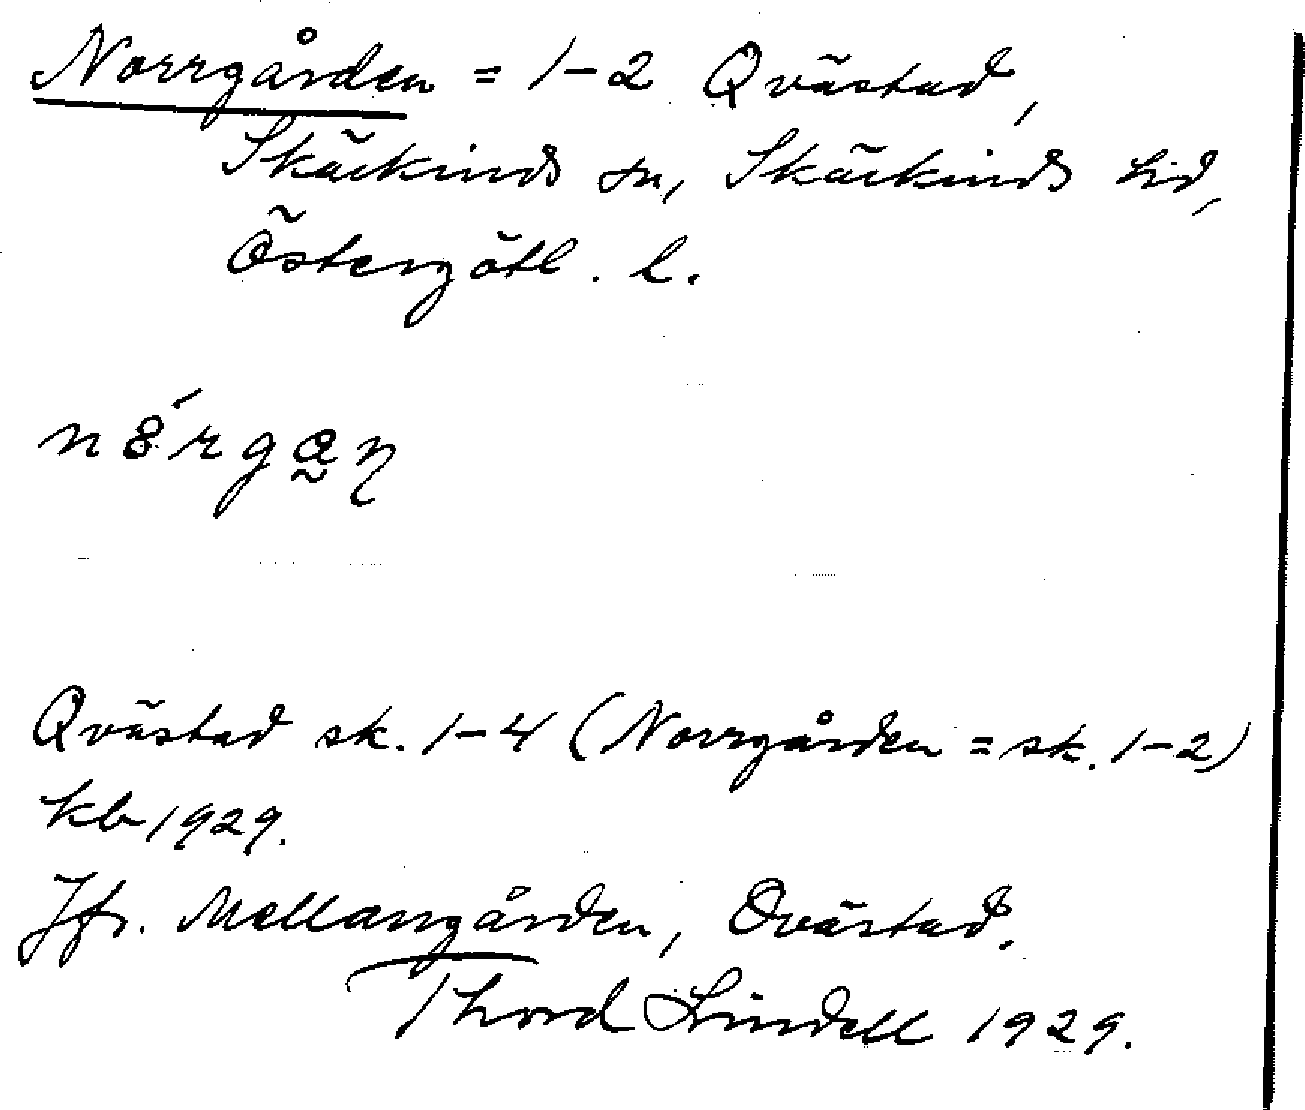 Norrgården = 1-2 Qvästad,
Skäckinds sn, Skäckinds hd,
Östergötl. l.
Qvästad sk. 1-4 (Norrgården = sk. 1-2)
kb 1929.
Jfr. Mellangården, Qvästad.
Thord Lindell 1929.